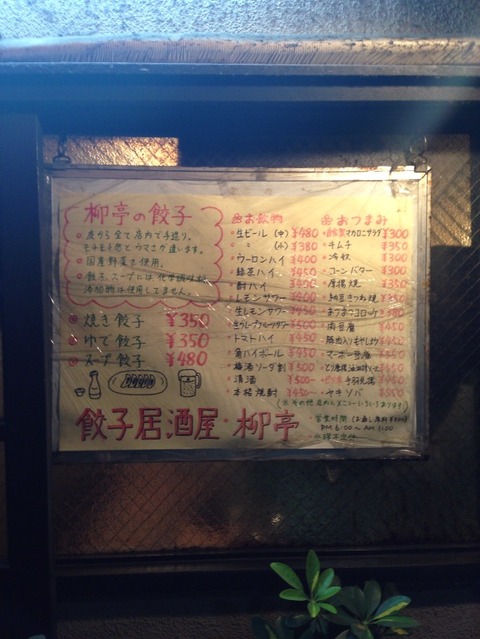 柳亭の餃子
皮から全て店内で手造り。
モチモチ感とウマさが違います。
国産野菜を使用。
餃子、スープには化学調味料
添加物は使用してません。
焼き餃子 ¥350
ゆで餃子 ¥350
スープ餃子 ¥480
お飲物
生ビール (中) ¥480
〃 (小) ¥380
ウーロンハイ ¥400
緑茶ハイ ¥450
酎ハイ ¥400
レモンサワー ¥400
生レモンサワー
生グレープフルーツサワー
トマトハイ ¥450
角ハイボール ¥450
梅酒ソーダ割 ¥500
清酒 ¥500-
本格焼酎 ¥450-
おつまみ
自家製マカロニサラダ ¥300
キムチ ¥350
冷奴 ¥300
コーンバター ¥300
厚揚焼 ¥350
納豆きつね焼 ¥350
あつあつコロッケ
肉豆腐 ¥450
豚肉入りもやし
マーボー豆腐
手羽元揚
ヤキソバ ¥550
餃子居酒屋・柳亭
営業時間
PM 6:00〜AM 1:00